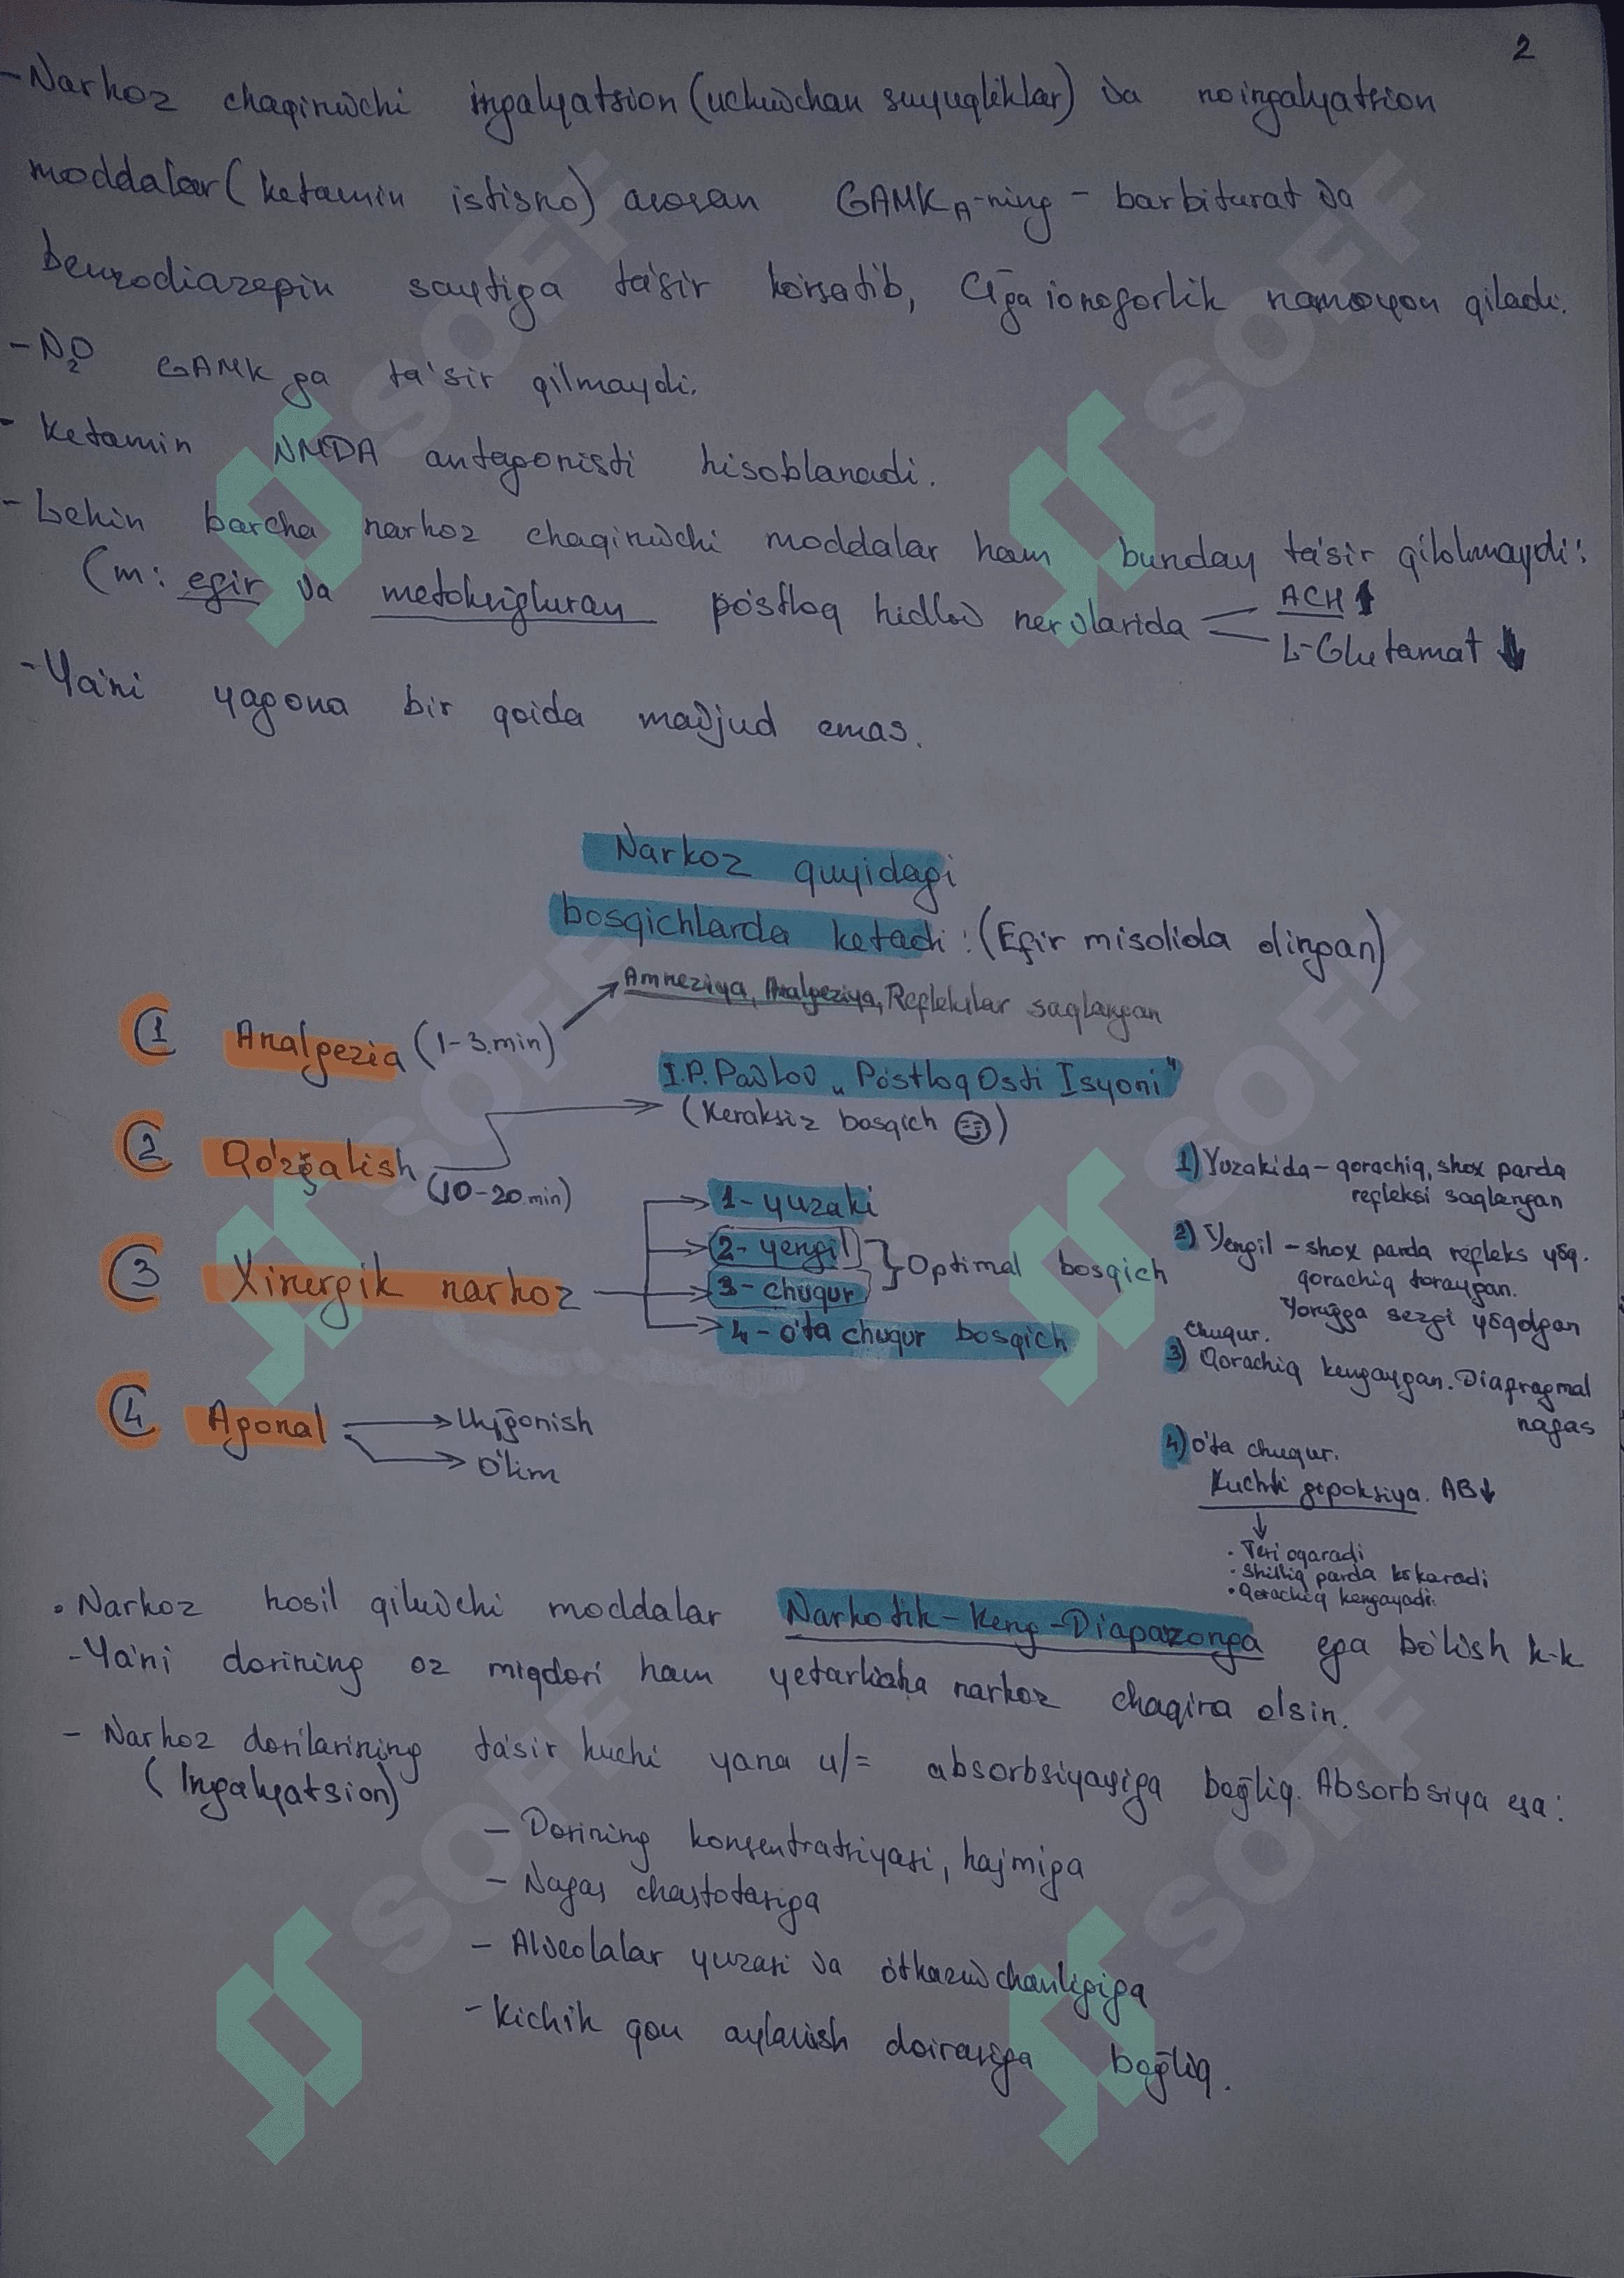 2
- Narkoz chaqiruvchi ingalyatsion (uchuvchan suyuqliklar) va noingalyatsion
moddalar (ketamin istisno) asosan GAMK A-ning - barbiturat va
benzodiazepin saytiga ta'sir ko'rsatib, Cl⁻ga ionoforlik namoyon qiladi.
- N₂O GAMK ga ta'sir qilmaydi.
- Ketamin NMDA antagonisti hisoblanadi.
- Lekin barcha narkoz chaqiruvchi moddalar ham bunday ta'sir qilolmaydi:
(m: efir va metoksifluran po'stloq hidlov nervlarida
ACH ↑
L-Glutamat ↓
- Ya'ni yagona bir qoida mavjud emas.
Narkoz quyidagi
bosqichlarda ketadi: (Efir misolida olingan)
Amneziya, Analgeziya, Reflekslar saqlangan
1 Analgezia (1-3.min)
I.P. Pavlov "Po'stloq Osti Isyoni"
(Keraksiz bosqich)
2 Qo'zg'alish (10-20.min)
3 Xirurgik narkoz
1 - yuzaki
2 - yengil
3 - chuqur
} Optimal bosqich
4 - o'ta chuqur bosqich
4 Agonal
→ Uyg'onish
→ O'lim
1) Yuzakida - qorachiq, shox parda
refleksi saqlangan
2) Yengil - shox parda refleks yo'q.
qorachiq toraygan.
Yorug'ga sezgi yo'qolgan
Chuqur.
3) Qorachiq kengaygan. Diafragmal
nafas
4) o'ta chuqur.
Kuchli gipoksiya. AB↓
↓
· Teri oqaradi
· Shilliq parda ko'karadi
· Qorachiq kengayadi.
• Narkoz hosil qiluvchi moddalar Narkotik-Keng-Diapazonga ega bo'lish k-k
- Ya'ni dorining oz miqdori ham yetarlicha narkoz chaqira olsin.
- Narkoz dorilarining ta'sir kuchi yana u/= absorbsiyasiga bog'liq. Absorbsiya esa:
(Ingalyatsion)
- Dorining konsentratsiyasi, hajmiga
- Nafas chastotasiga
- Alveolalar yuzasi va o'tkazuvchanligiga
- Kichik qon aylanish doirasiga bog'liq.
SOFF
SOFF
SOFF
SOFF
SOFF
SOFF